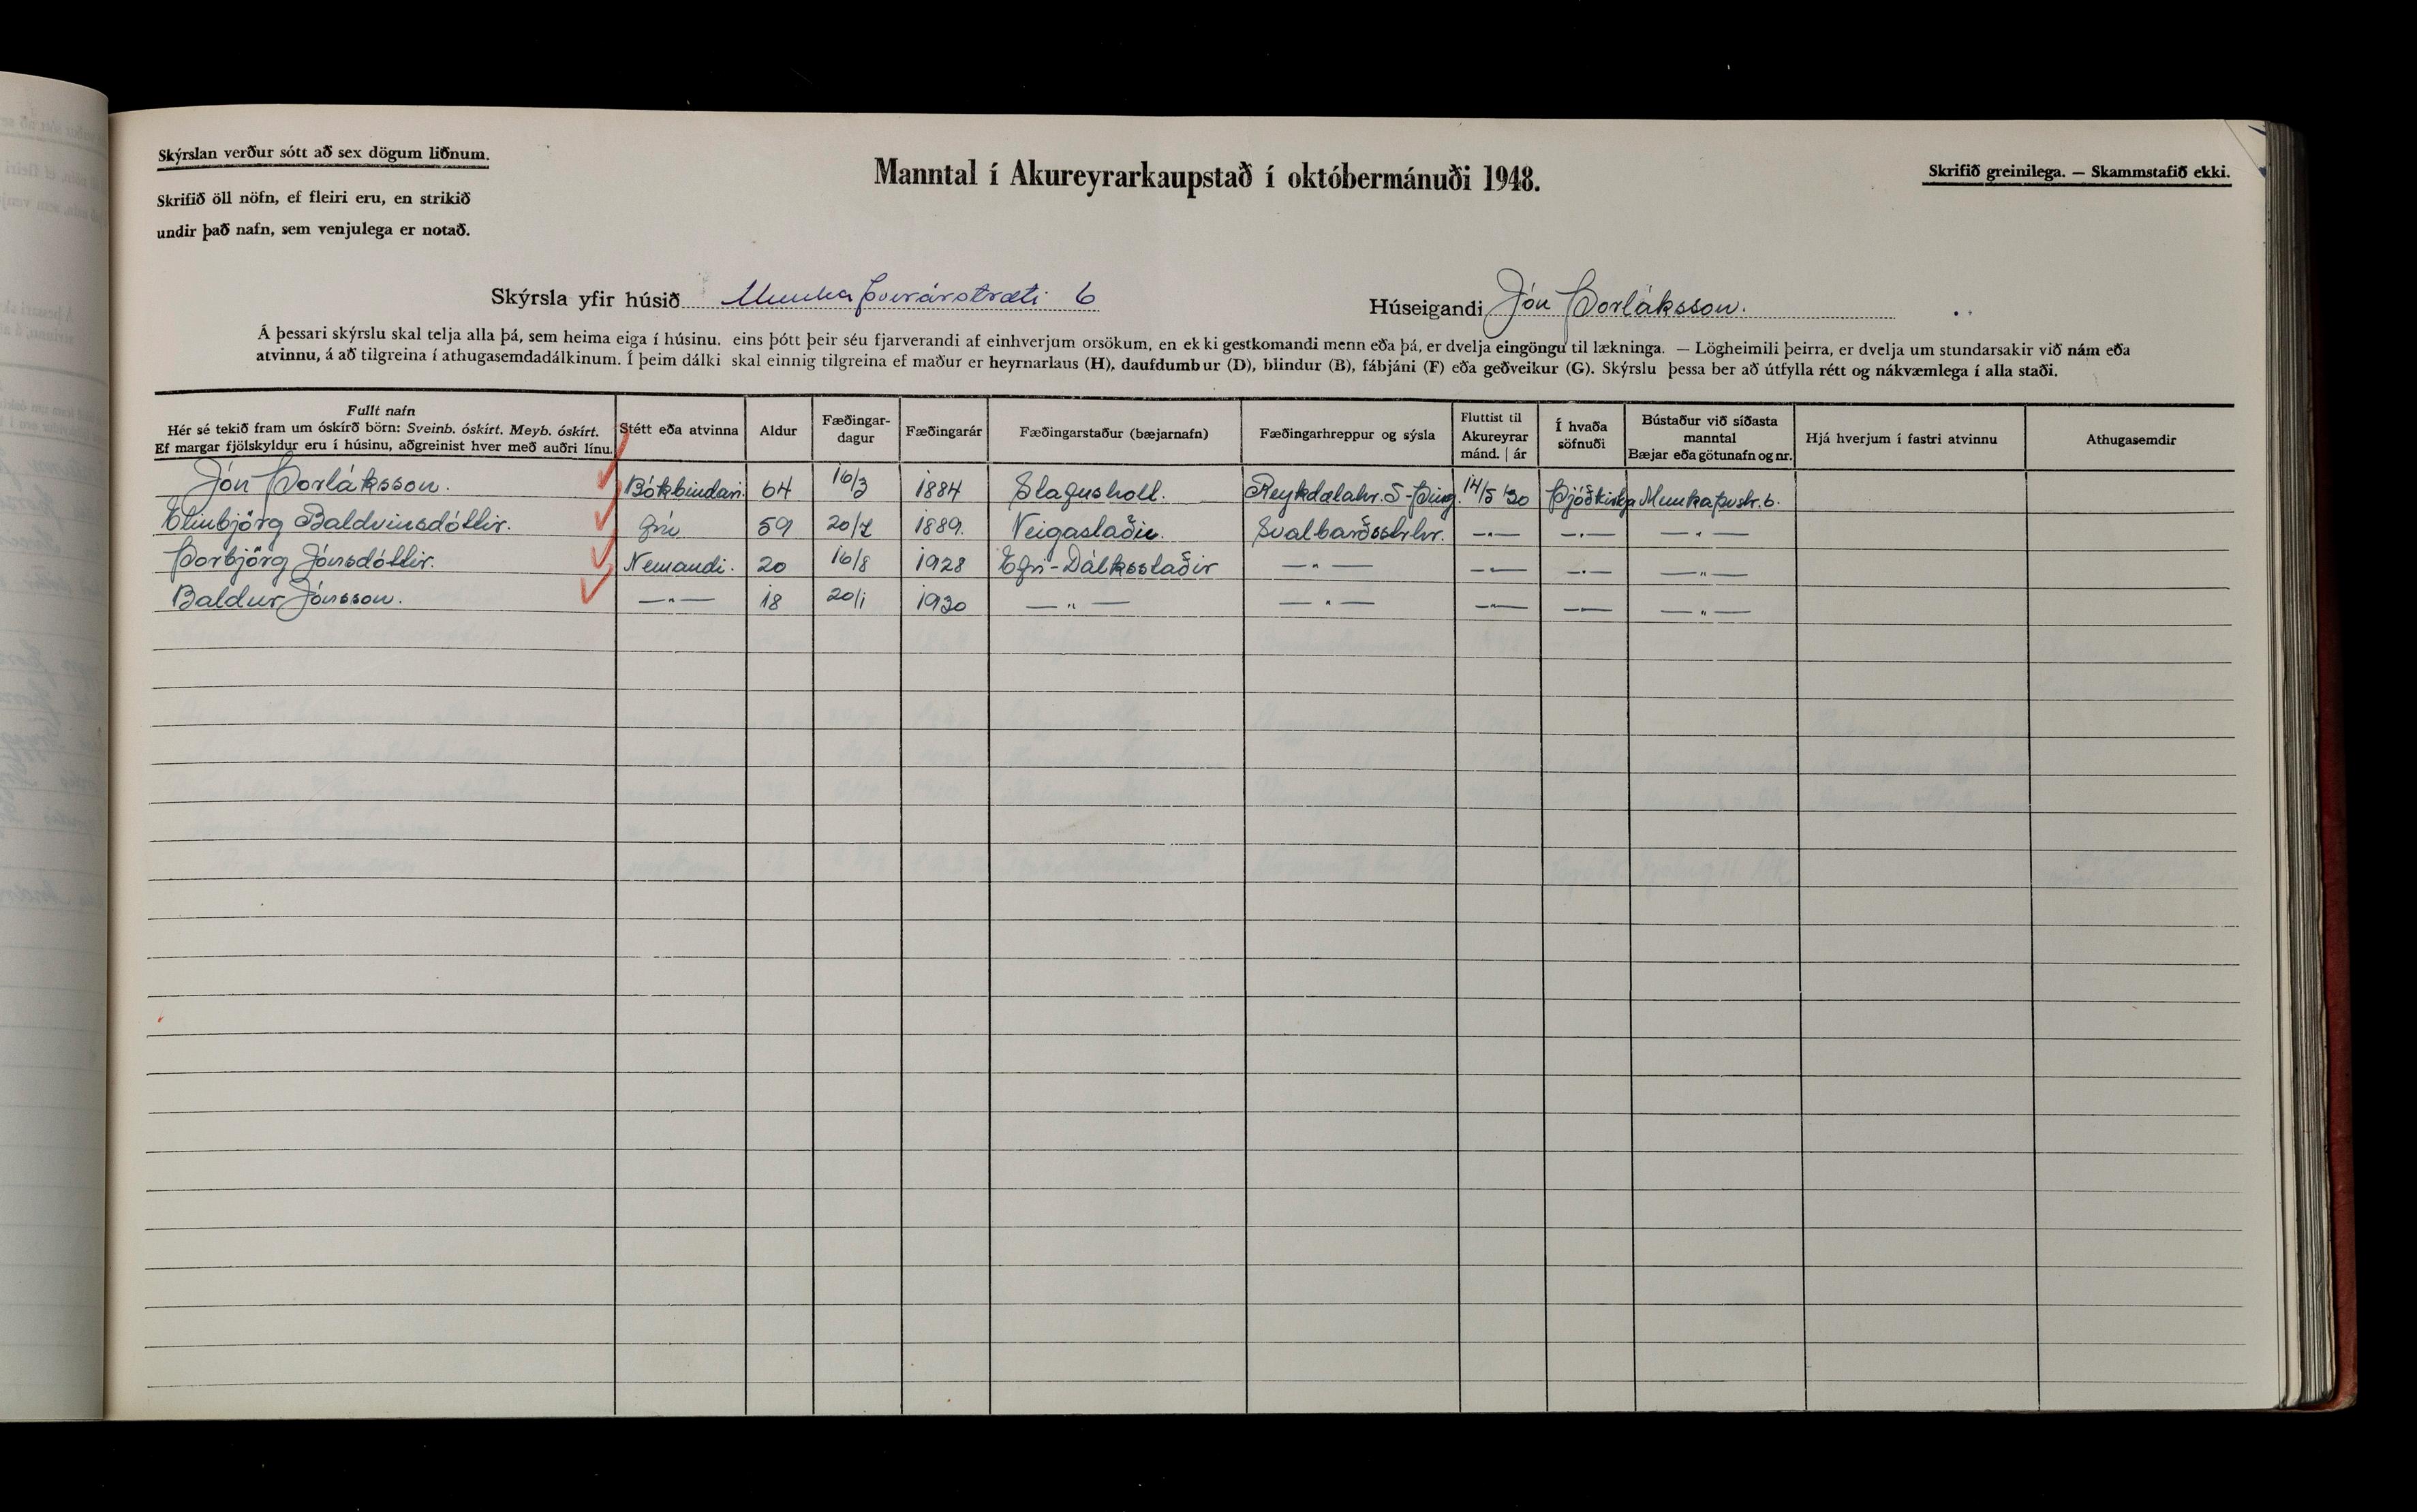 Skýrslan verður sótt að sex dögum liðnum.
Skrifið öll nöfn, ef fleiri eru, en strikið
undir það nafn, sem venjulega er notað.
Manntal í Akureyrarkaupstað í októbermánuði 1948.
Skrifið greinilega. — Skammstafið ekki.
Skýrsla yfir húsið Munkaþverárstræti 6
Húseigandi Jón Þorláksson.
Á þessari skýrslu skal telja alla þá, sem heima eiga í húsinu, eins þótt þeir séu fjarverandi af einhverjum orsökum, en ekki gestkomandi menn eða þá, er dvelja eingöngu til lækninga. — Lögheimili þeirra, er dvelja um stundarsakir við nám eða
atvinnu, á að tilgreina í athugasemdadálkinum. Í þeim dálki skal einnig tilgreina ef maður er heyrnarlaus (H), daufdumbur (D), blindur (B), fábjáni (F) eða geðveikur (G). Skýrslu þessa ber að útfylla rétt og nákvæmlega í alla staði.
Fullt nafn
Hér sé tekið fram um óskírð börn: Sveinb. óskírt. Meyb. óskírt.
Ef margar fjölskyldur eru í húsinu, aðgreinist hver með auðri línu.
Stétt eða atvinna
Aldur
Fæðingar-
dagur
Fæðingarár
Fæðingarstaður (bæjarnafn)
Fæðingarhreppur og sýsla
Fluttist til
Akureyrar
mánd. | ár
Í hvaða
söfnuði
Bústaður við síðasta
manntal
Bæjar eða götunafn og nr.
Hjá hverjum í fastri atvinnu
Athugasemdir
Jón Þorláksson. Bókbindari. 64 16/3 1884 Reykdælahr. S-Þing. 14/5 '30 Þjóðkirkja Munkaþvstr. 6.
Elinbjörg Baldvinsdóttir. frú 59 20/7 1889. Veigastaðir. Svalbarðsstrhr. —"— —"— —"—
Þorbjörg Jónsdóttir. Nemandi. 20 16/8 1928 Efri-Dálksstaðir —"— —"— —"— —"—
Baldur Jónsson. —"— 18 20/1 1930 —"— —"— —"— —"— —"—